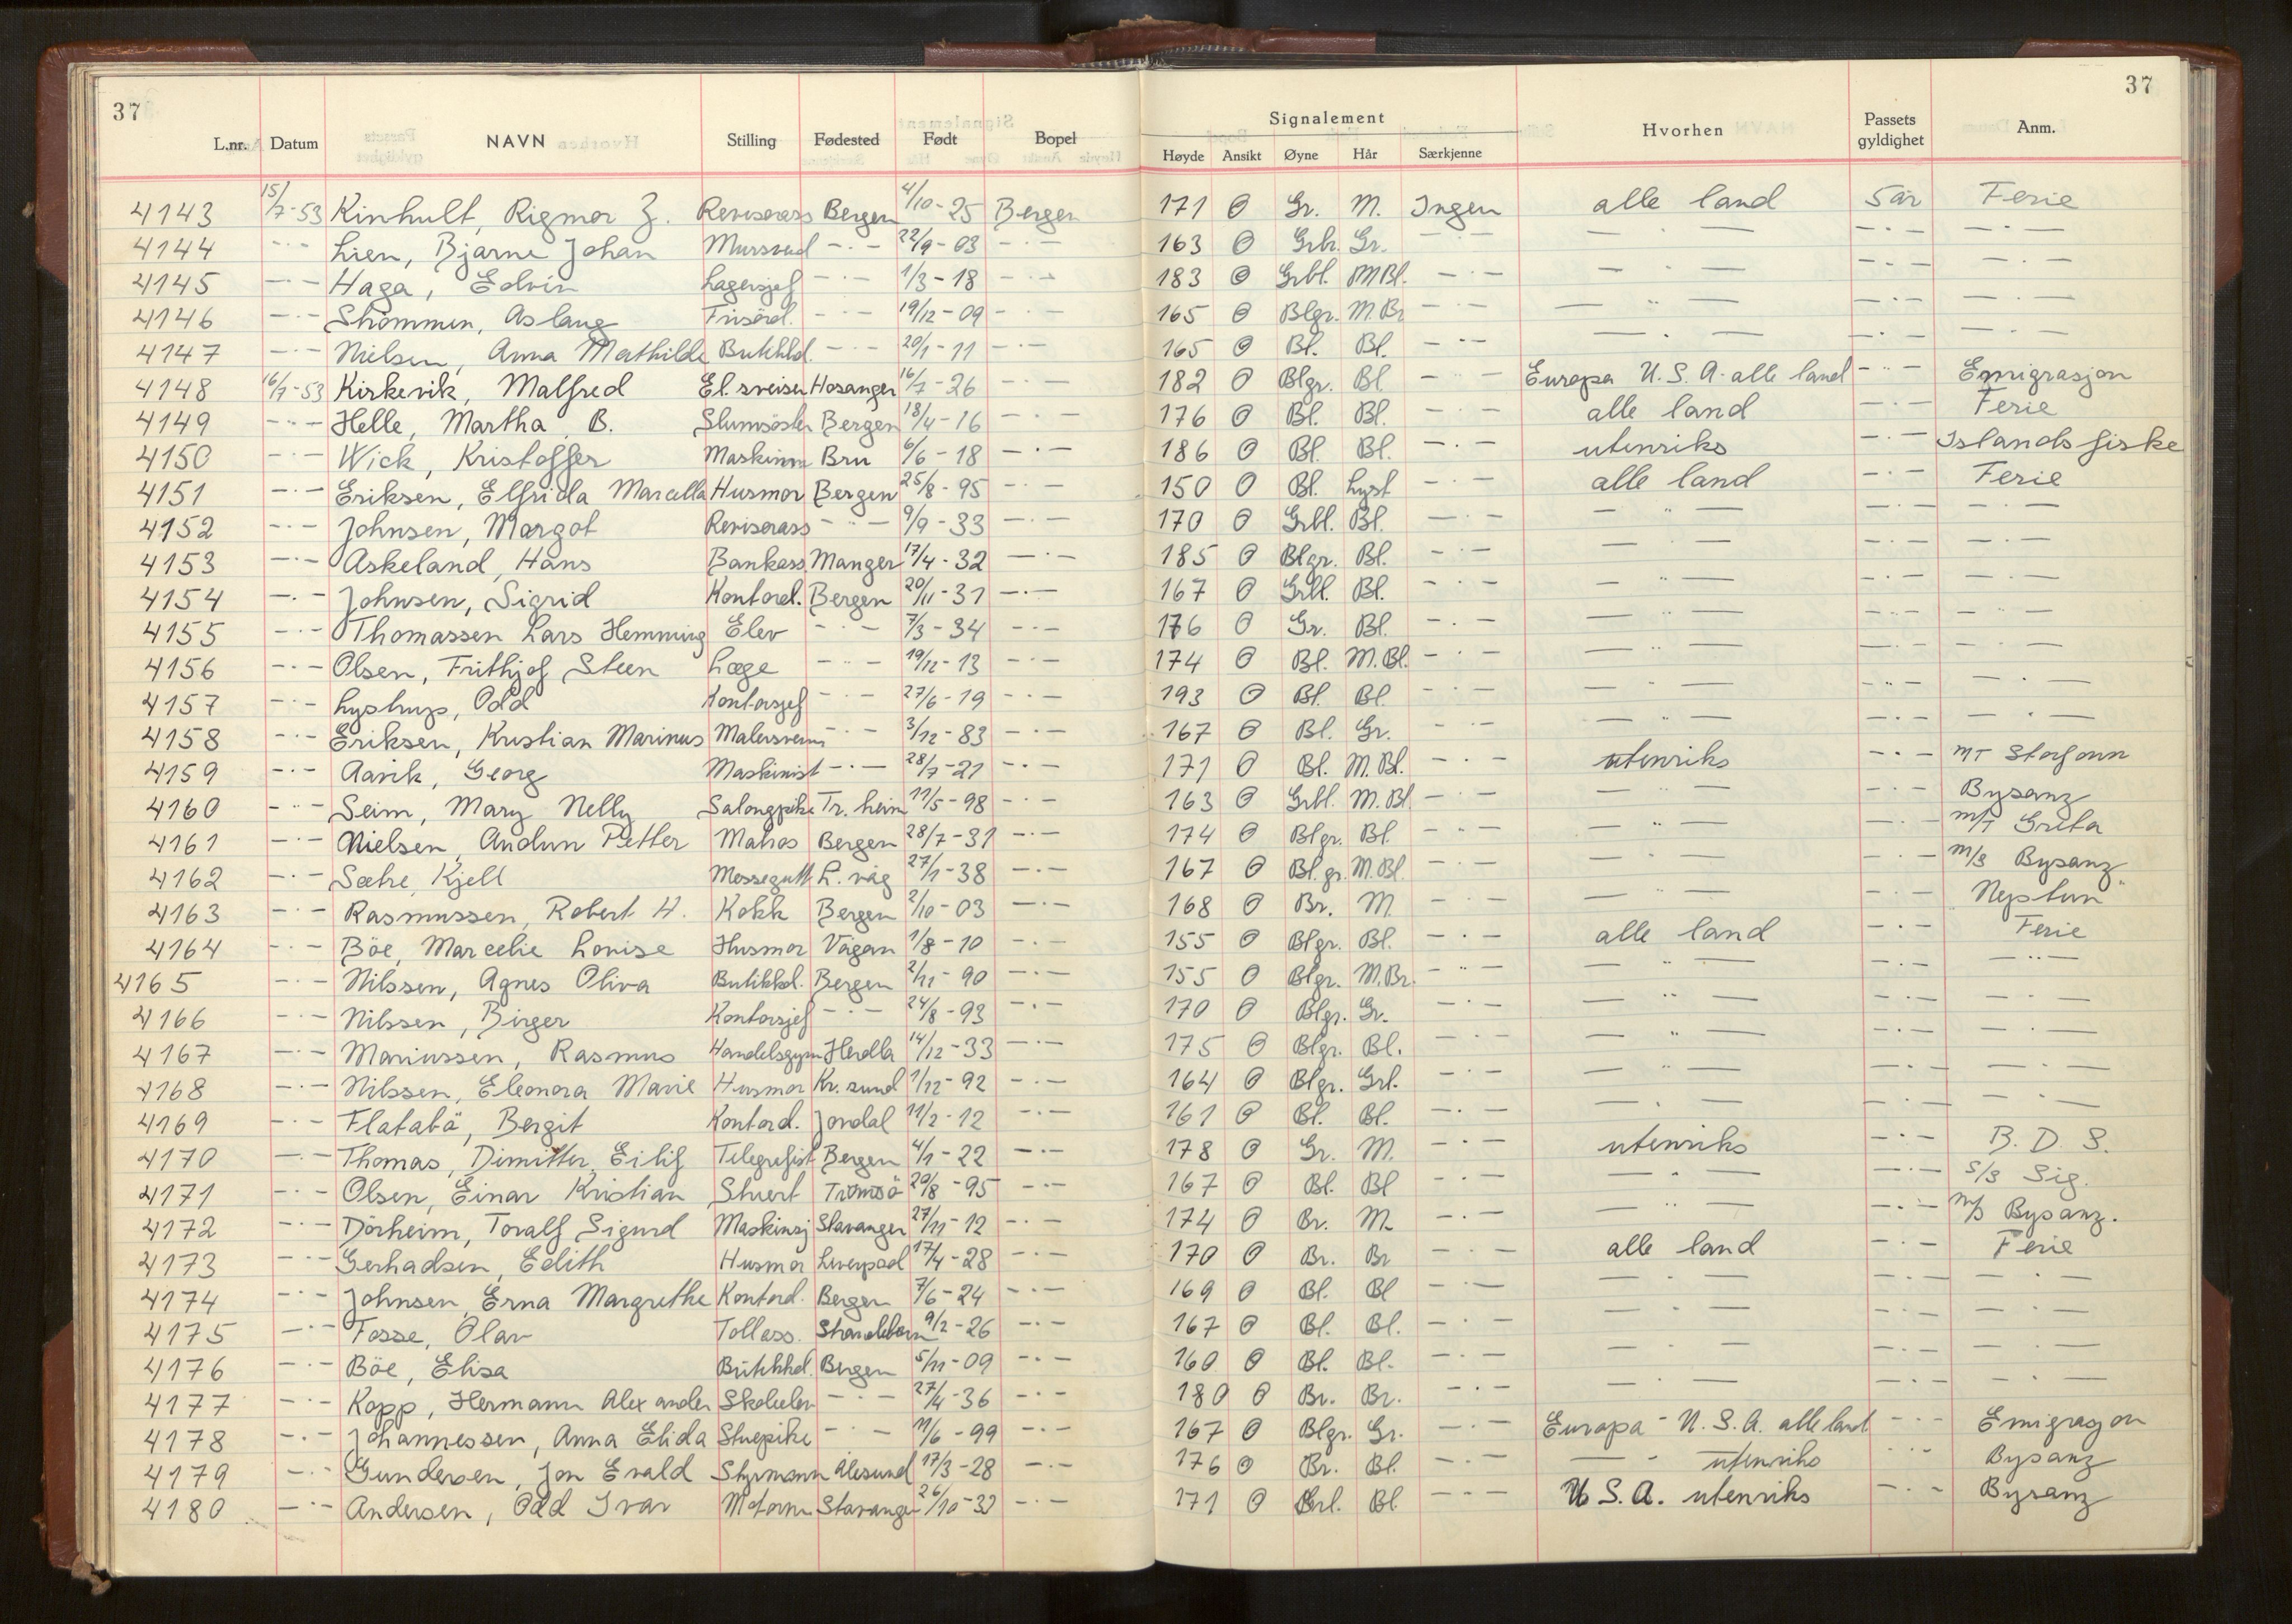 37
37
Signalement
L.nr. Datum NAVN Stilling Fødested Født Bopel Høyde Ansikt Øyne Hår Særkjenne Hvorhen Passets gyldighet Anm.
4143 15/7-53 Kinhult, Rigmor Z. Revisorass Bergen 4/10-25 Bergen 171 O Gr. M. Ingen alle land 5 år Ferie
4144 -"- Lien, Bjarne Johan Mursvend -"- 22/9-03 -"- 163 O Grbr. Gr. -"- -"- -"- -"-
4145 -"- Haga, Edvin Lagersjef -"- 1/3-18 -"- 183 O Grbl. M Bl. -"- -"- -"- -"-
4146 -"- Strømmen, Aslaug Frisörd. -"- 19/12-09 -"- 165 O Blgr. M. Br -"- -"- -"- -"-
4147 -"- Nielsen, Anna Mathilde Butikkd. -"- 20/1-11 -"- 165 O Bl. Bl. -"- -"- -"- -"-
4148 16/7-53 Kirkevik, Malfred El. sveiser Hosanger 16/7-26 -"- 182 O Blgr. Bl. -"- Europa U.S.A. alle land -"- Emigrasjon
4149 -"- Helle, Martha B. Slumsöster Bergen 18/4-16 -"- 176 O Bl. Bl. -"- alle land -"- Ferie
4150 -"- Wick, Kristoffer Maskinm Bru 6/6-18 -"- 186 O Bl. Bl. -"- utenriks -"- Islands fiske
4151 -"- Eriksen, Elfrida Marcella Husmor Bergen 25/8-95 -"- 150 O Bl. Lyst -"- alle land -"- Ferie
4152 -"- Johnsen, Margot Revisorass -"- 9/9-33 -"- 170 O Grbl. Bl. -"- -"- -"- -"-
4153 -"- Askeland, Hans Bankass. Manger 17/4-32 -"- 185 O Blgr. Bl. -"- -"- -"- -"-
4154 -"- Johnsen, Sigrid Kontord. Bergen 20/11-31 -"- 167 O Grbl. Bl. -"- -"- -"- -"-
4155 -"- Thomassen Lars Hemming Elev -"- 7/3-34 -"- 176 O Gr. Bl. -"- -"- -"- -"-
4156 -"- Olsen, Frithjof Steen Læge -"- 19/12-13 -"- 174 O Bl. M. Bl. -"- -"- -"- -"-
4157 -"- Lystrup, Odd Kontorsjef -"- 27/6-19 -"- 193 O Bl. Bl. -"- -"- -"- -"-
4158 -"- Eriksen, Kristian Marinus Malersvenn -"- 3/12-83 -"- 167 O Bl. Gr. -"- -"- -"- -"-
4159 -"- Aavik, Georg Maskinist -"- 28/7-21 -"- 171 O Bl. M. Bl. -"- utenriks -"- MT Storfonn
4160 -"- Seim, Mary Nelly Salongpike Tr. heim 11/5-98 -"- 163 O Grbl. M. Bl -"- -"- -"- Bysanz
4161 -"- Nielsen, Audun Petter Matros Bergen 28/7-31 -"- 174 O Blgr. Bl. -"- -"- -"- M/T Greta
4162 -"- Sætre, Kjell Messegutt L. våg 27/1-38 -"- 167 O Bl. gr. M. Bl. -"- -"- -"- M/S Bysanz
4163 -"- Rasmussen, Robert H. Kokk Bergen 2/10-03 -"- 168 O Br. M -"- -"- -"- Neptun"
4164 -"- Böe, Marcelie Lovise Husmor Vågan 1/8-10 -"- 155 O Blgr. Bl. -"- alle land -"- Ferie
4165 -"- Nilssen, Agnes Oliva Butikkd. Bergen 2/11-90 -"- 155 O Blgr. M. Br. -"- -"- -"- -"-
4166 -"- Nilssen, Birger Kontorsjef -"- 24/8-93 -"- 170 O Blgr. Gr. -"- -"- -"- -"-
4167 -"- Mariussen, Rasmus Handelsgym Herdla 14/12-33 -"- 175 O Blgr. Bl. -"- -"- -"- -"-
4168 -"- Nilssen, Eleonora Marie Husmor Kr. sund 1/12-92 -"- 164 O Blgr. Grl. -"- -"- -"- -"-
4169 -"- Flatabö, Bergit Kontord. Jondal 11/2-12 -"- 161 O Bl. Bl. -"- -"- -"- -"-
4170 -"- Thomas, Dimitter, Eilif Telegrafist Bergen 4/1-22 -"- 178 O Gr. M. -"- utenriks -"- B. D. S.
4171 -"- Olsen, Einar Kristian Stuert Tromsö 20/8-95 -"- 167 O Bl. Bl -"- -"- -"- S/S Sig.
4172 -"- Dörheim, Toralf Sigurd Maskinsj Stavanger 27/11-12 -"- 174 O Br. M -"- -"- -"- M/S Bysanz.
4173 -"- Gerhadsen, Edith Husmor Liverpool 17/4-28 -"- 170 O Br. Br -"- alle land -"- Ferie
4174 -"- Johnsen, Erna Margrethe Kontord. Bergen 7/6-24 -"- 169 O Bl. Bl -"- -"- -"- -"-
4175 -"- Fosse, Olav Tollass. Strandebarm 9/2-26 -"- 167 O Bl. Bl. -"- -"- -"- -"-
4176 -"- Böe, Elisa Butikkd. Bergen 5/11-09 -"- 160 O Bl. Bl. -"- -"- -"- -"-
4177 -"- Kopp, Hermann Alexander Skoleelev -"- 27/4-36 -"- 180 O Br. Br. -"- -"- -"- -"-
4178 -"- Johannessen, Anna Elida Stuepike -"- 11/6-99 -"- 167 O Blgr. Gr. -"- Europa - U.S.A. alle land -"- Emigrasjon
4179 -"- Gundersen, Jon Evald Styrmann Ålesund 17/3-28 -"- 176 O Br. Bl. -"- -"- utenriks -"- Bysanz
4180 -"- Andersen, Odd Ivar Motorm Stavanger 26/10-32 -"- 171 O Bl. -"- U S.A. utenriks -"- Bysanz